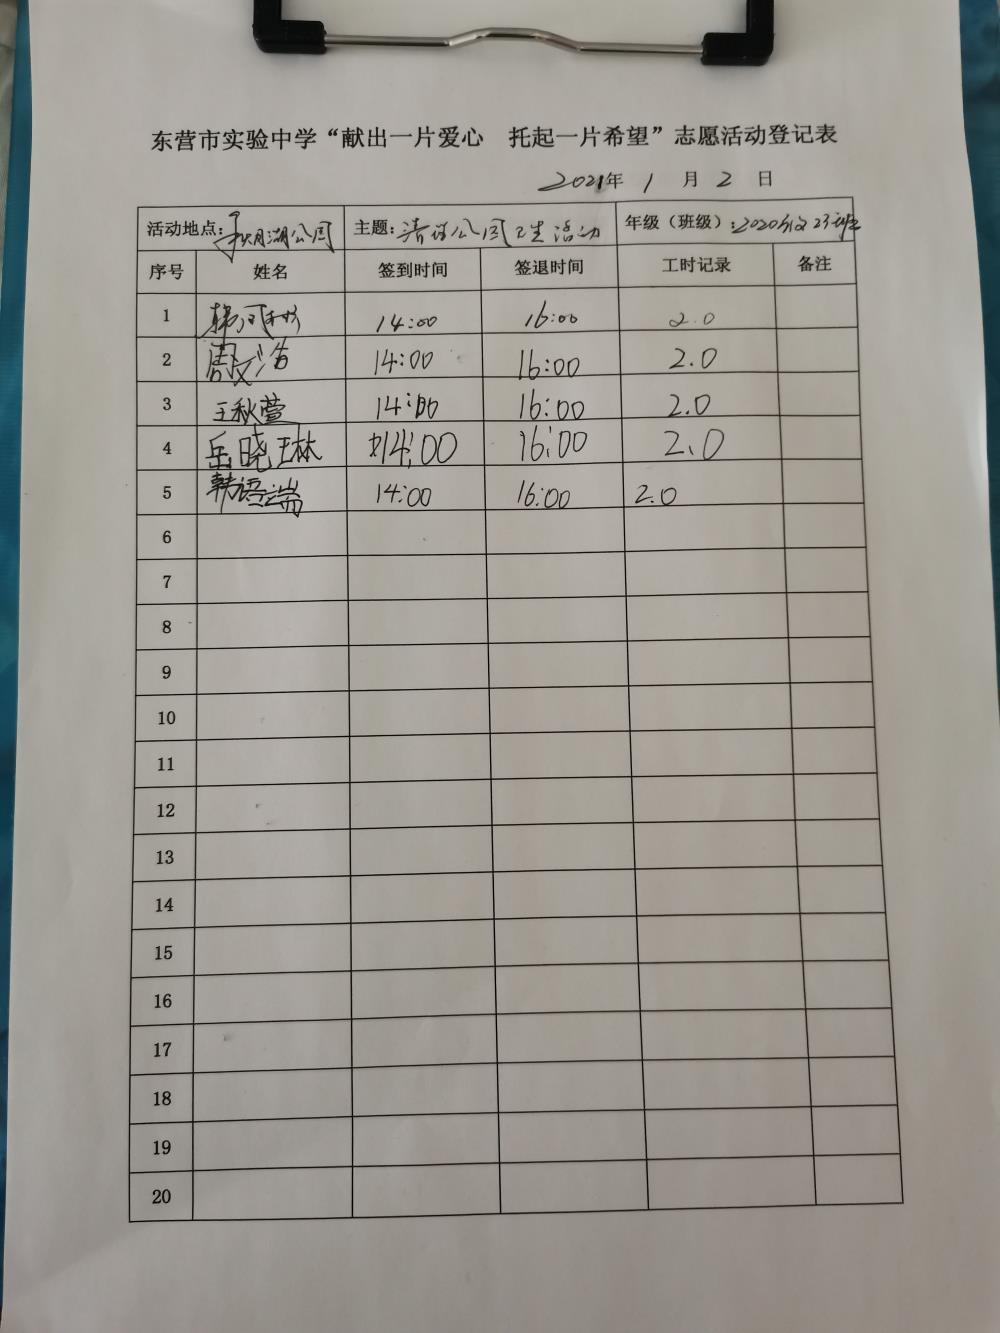 东营市实验中学“献出一片爱心 托起一片希望”志愿活动登记表
2021年 1 月 2 日
活动地点：月湖公园 主题：清理公园卫生活动 年级（班级）：2020级23班
序号 姓名 签到时间 签退时间 工时记录 备注
1 韩 14:00 16:00 2.0
2 周文浩 14:00 16:00 2.0
3 王秋萱 14:00 16:00 2.0
4 岳晓琳 14:00 16:00 2.0
5 韩语端 14:00 16:00 2.0
6
7
8
9
10
11
12
13
14
15
16
17
18
19
20